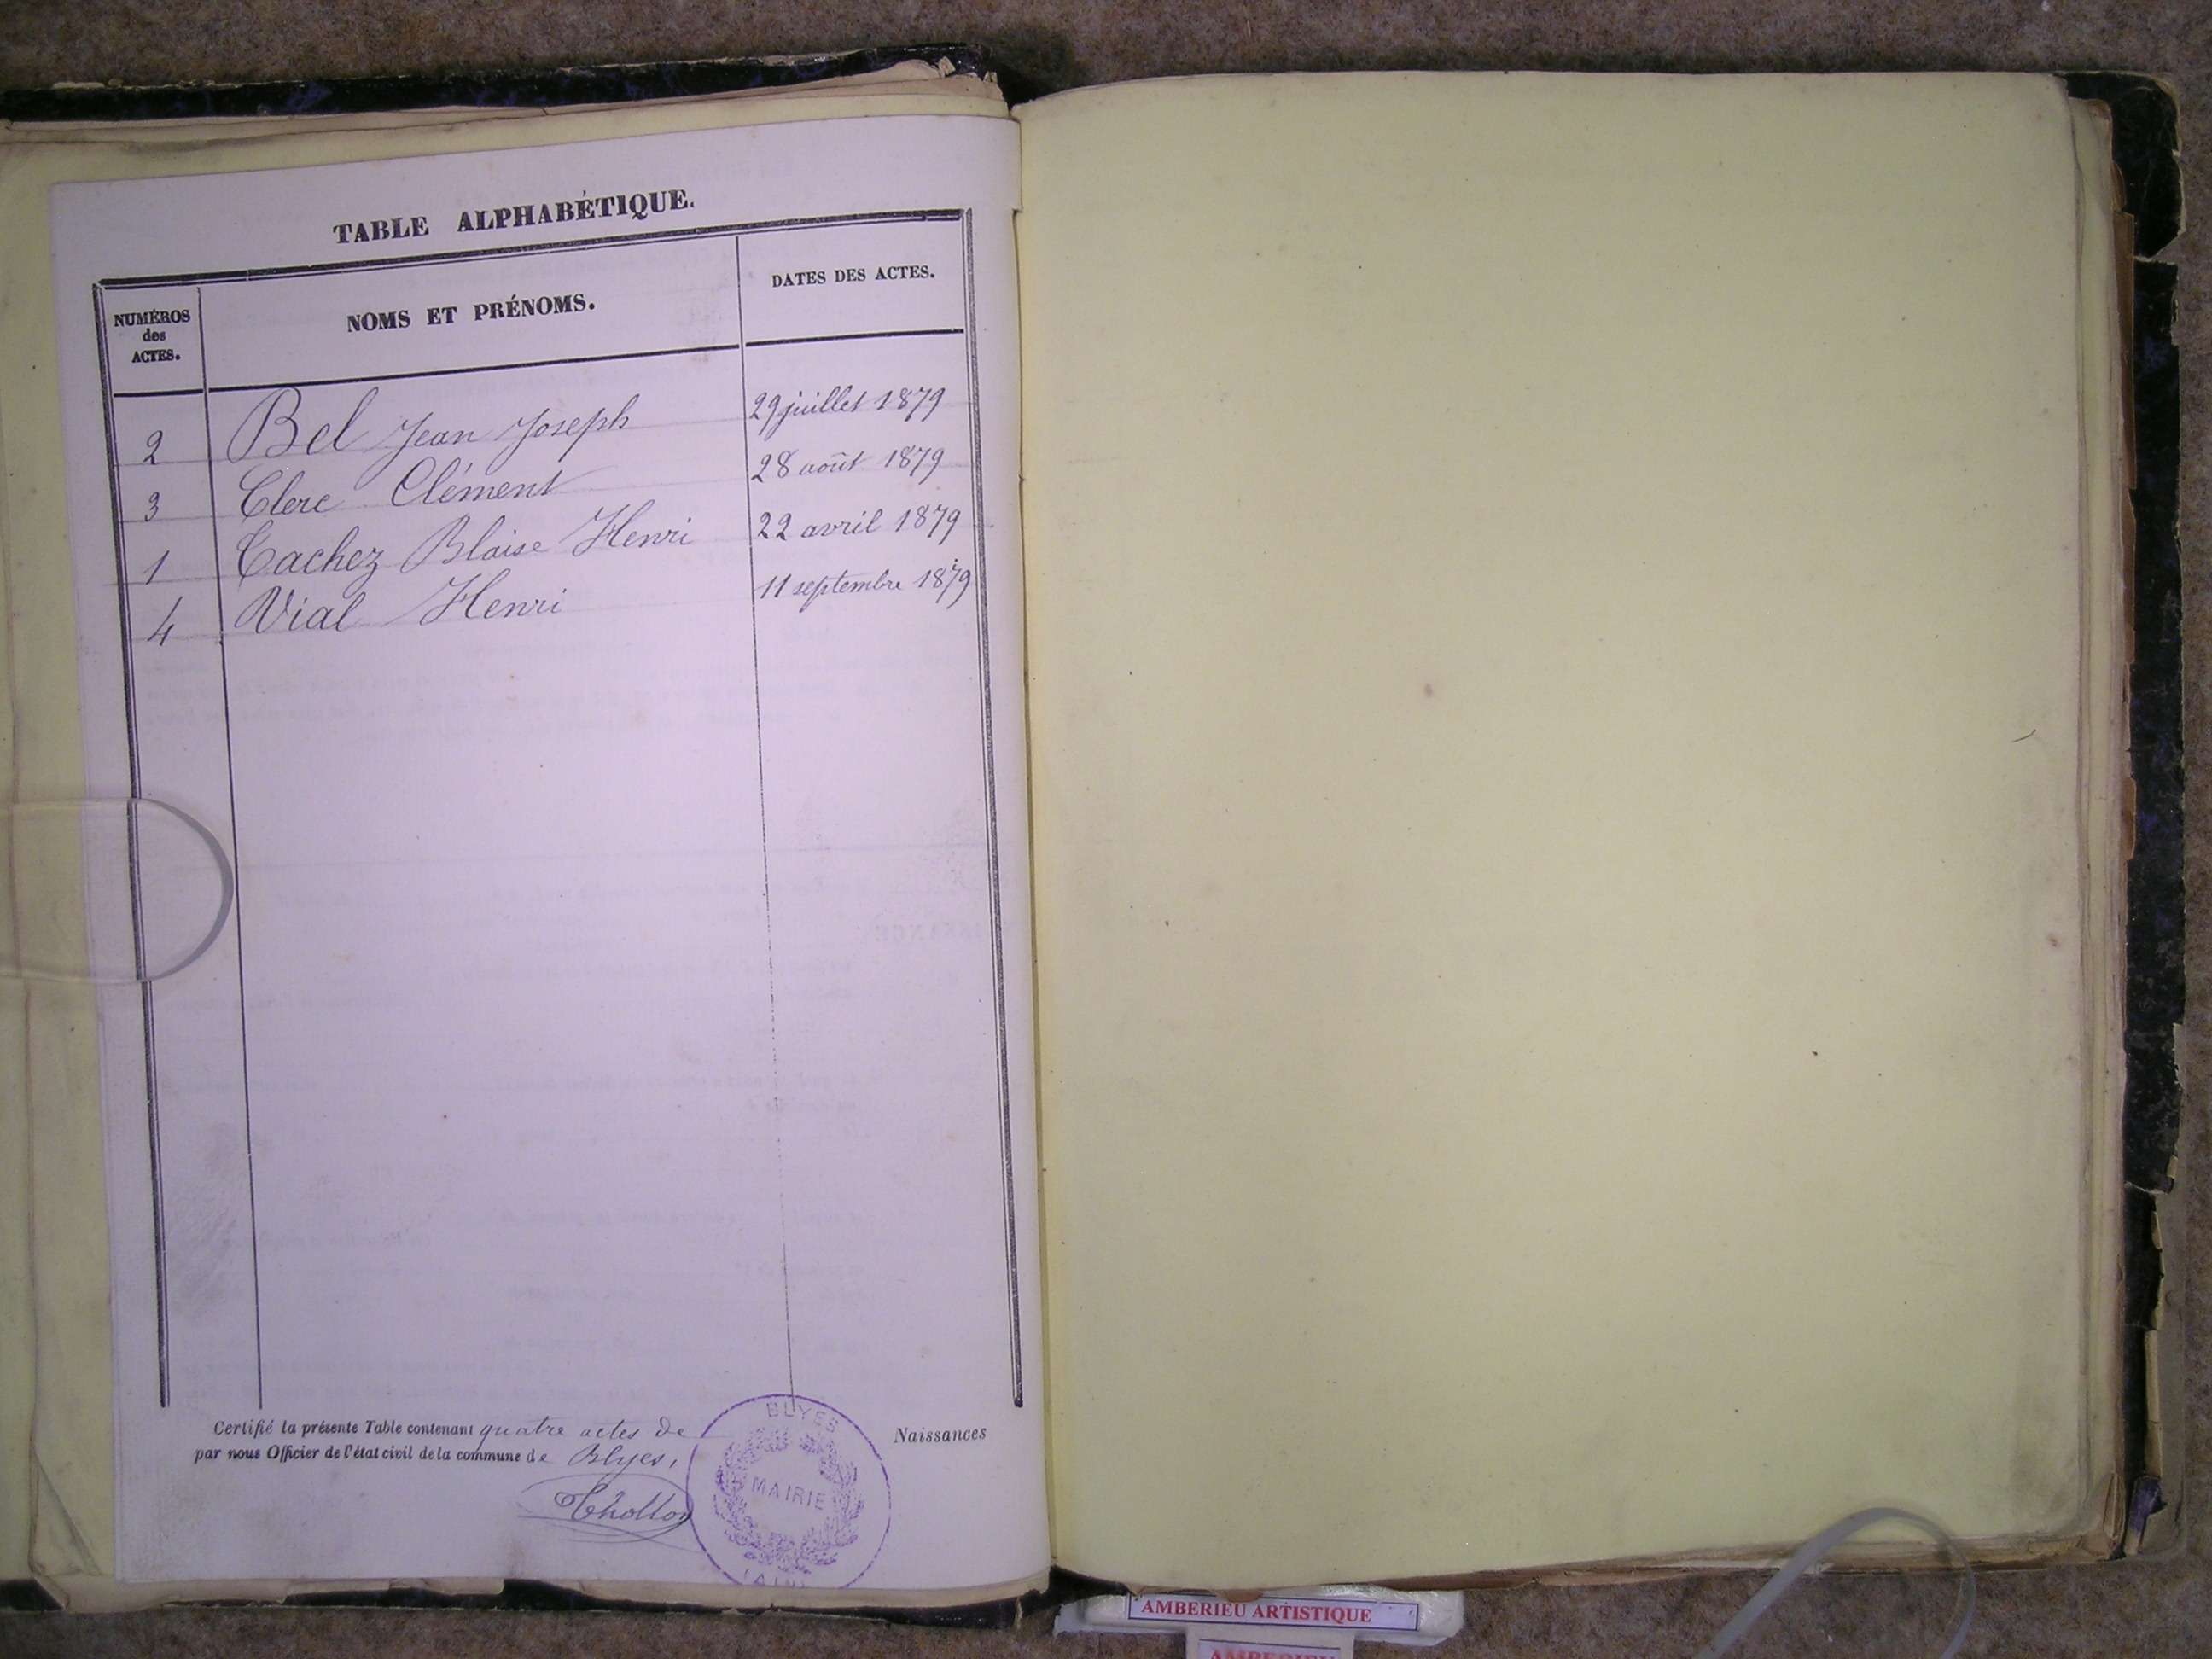 TABLE ALPHABÉTIQUE.
NUMÉROS
des
ACTES.
NOMS ET PRÉNOMS.
DATES DES ACTES.
2 Bel Jean Joseph 29 juillet 1879
3 Clerc Clément 28 août 1879
1 Cachez Blaise Henri 22 avril 1879
4 Vial Henri 11 septembre 1879
Certifié la présente Table contenant quatre actes de Naissances
par nous Officier de l'état civil de la commune de Blyes,
BLYES
MAIRIE
(AIN)
AMBERIEU ARTISTIQUE
AMBERIEU